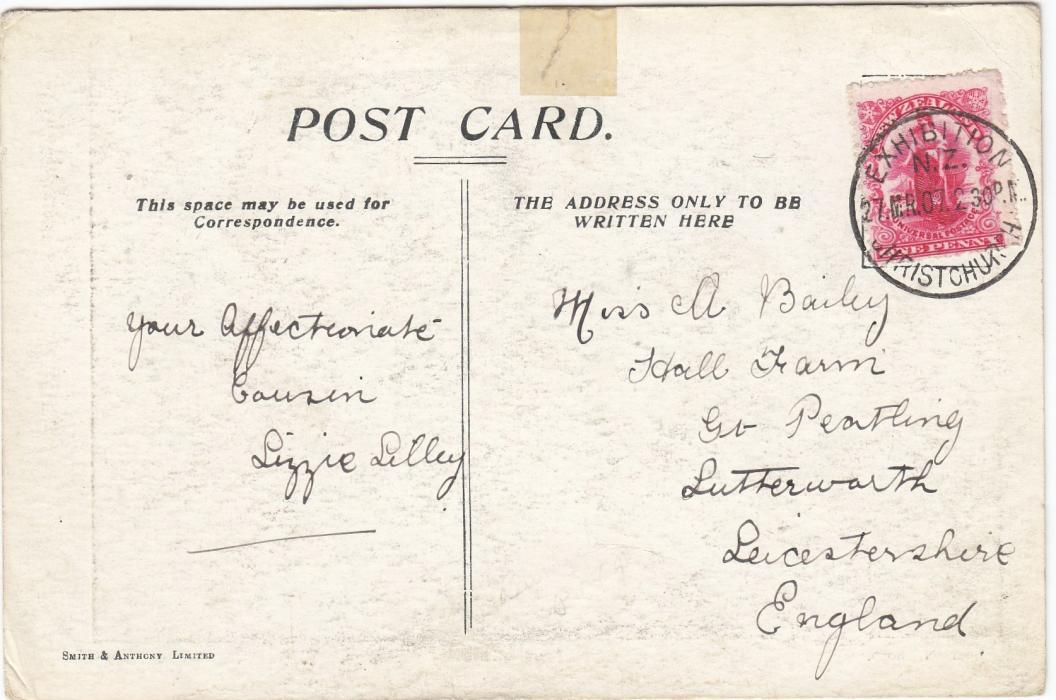 POST CARD.
This space may be used for
Correspondence.
THE ADDRESS ONLY TO BE
WRITTEN HERE
NEW ZEALAND
UNIVERSAL POSTAGE
ONE PENNY
EXHIBITION
N.Z.
27.MR.07.2 30P.M.
CHRISTCHURCH
Your Affectionate
Cousin
Lizzie Lilley
Miss A Bailey
Hall Farm
Gt Peatling
Lutterworth
Leicestershire
England
SMITH & ANTHONY LIMITED